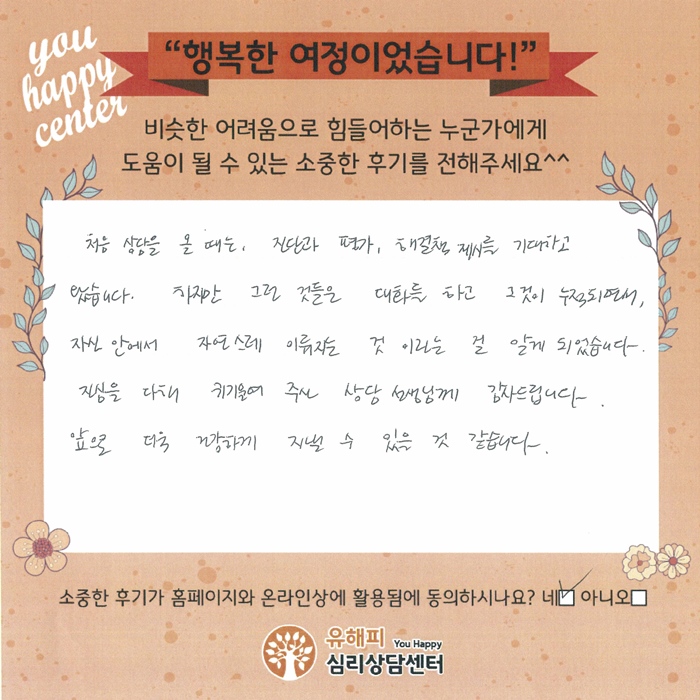 you
happy
center
“행복한 여정이었습니다!”
비슷한 어려움으로 힘들어하는 누군가에게
도움이 될 수 있는 소중한 후기를 전해주세요^^
처음 상담을 올 때는, 진단과 평가, 해결책 제시를 기대하고
왔습니다. 하지만 그런 것들은 대화를 하고 그것이 누적되면서,
자신 안에서 자연스레 이뤄지는 것 이라는 걸 알게 되었습니다.
진심을 다해 귀기울여 주신 상담 선생님께 감사드립니다.
앞으로 더욱 건강하게 지낼 수 있을 것 같습니다.
소중한 후기가 홈페이지와 온라인상에 활용됨에 동의하시나요? 네☑ 아니오□
유해피 You Happy
심리상담센터